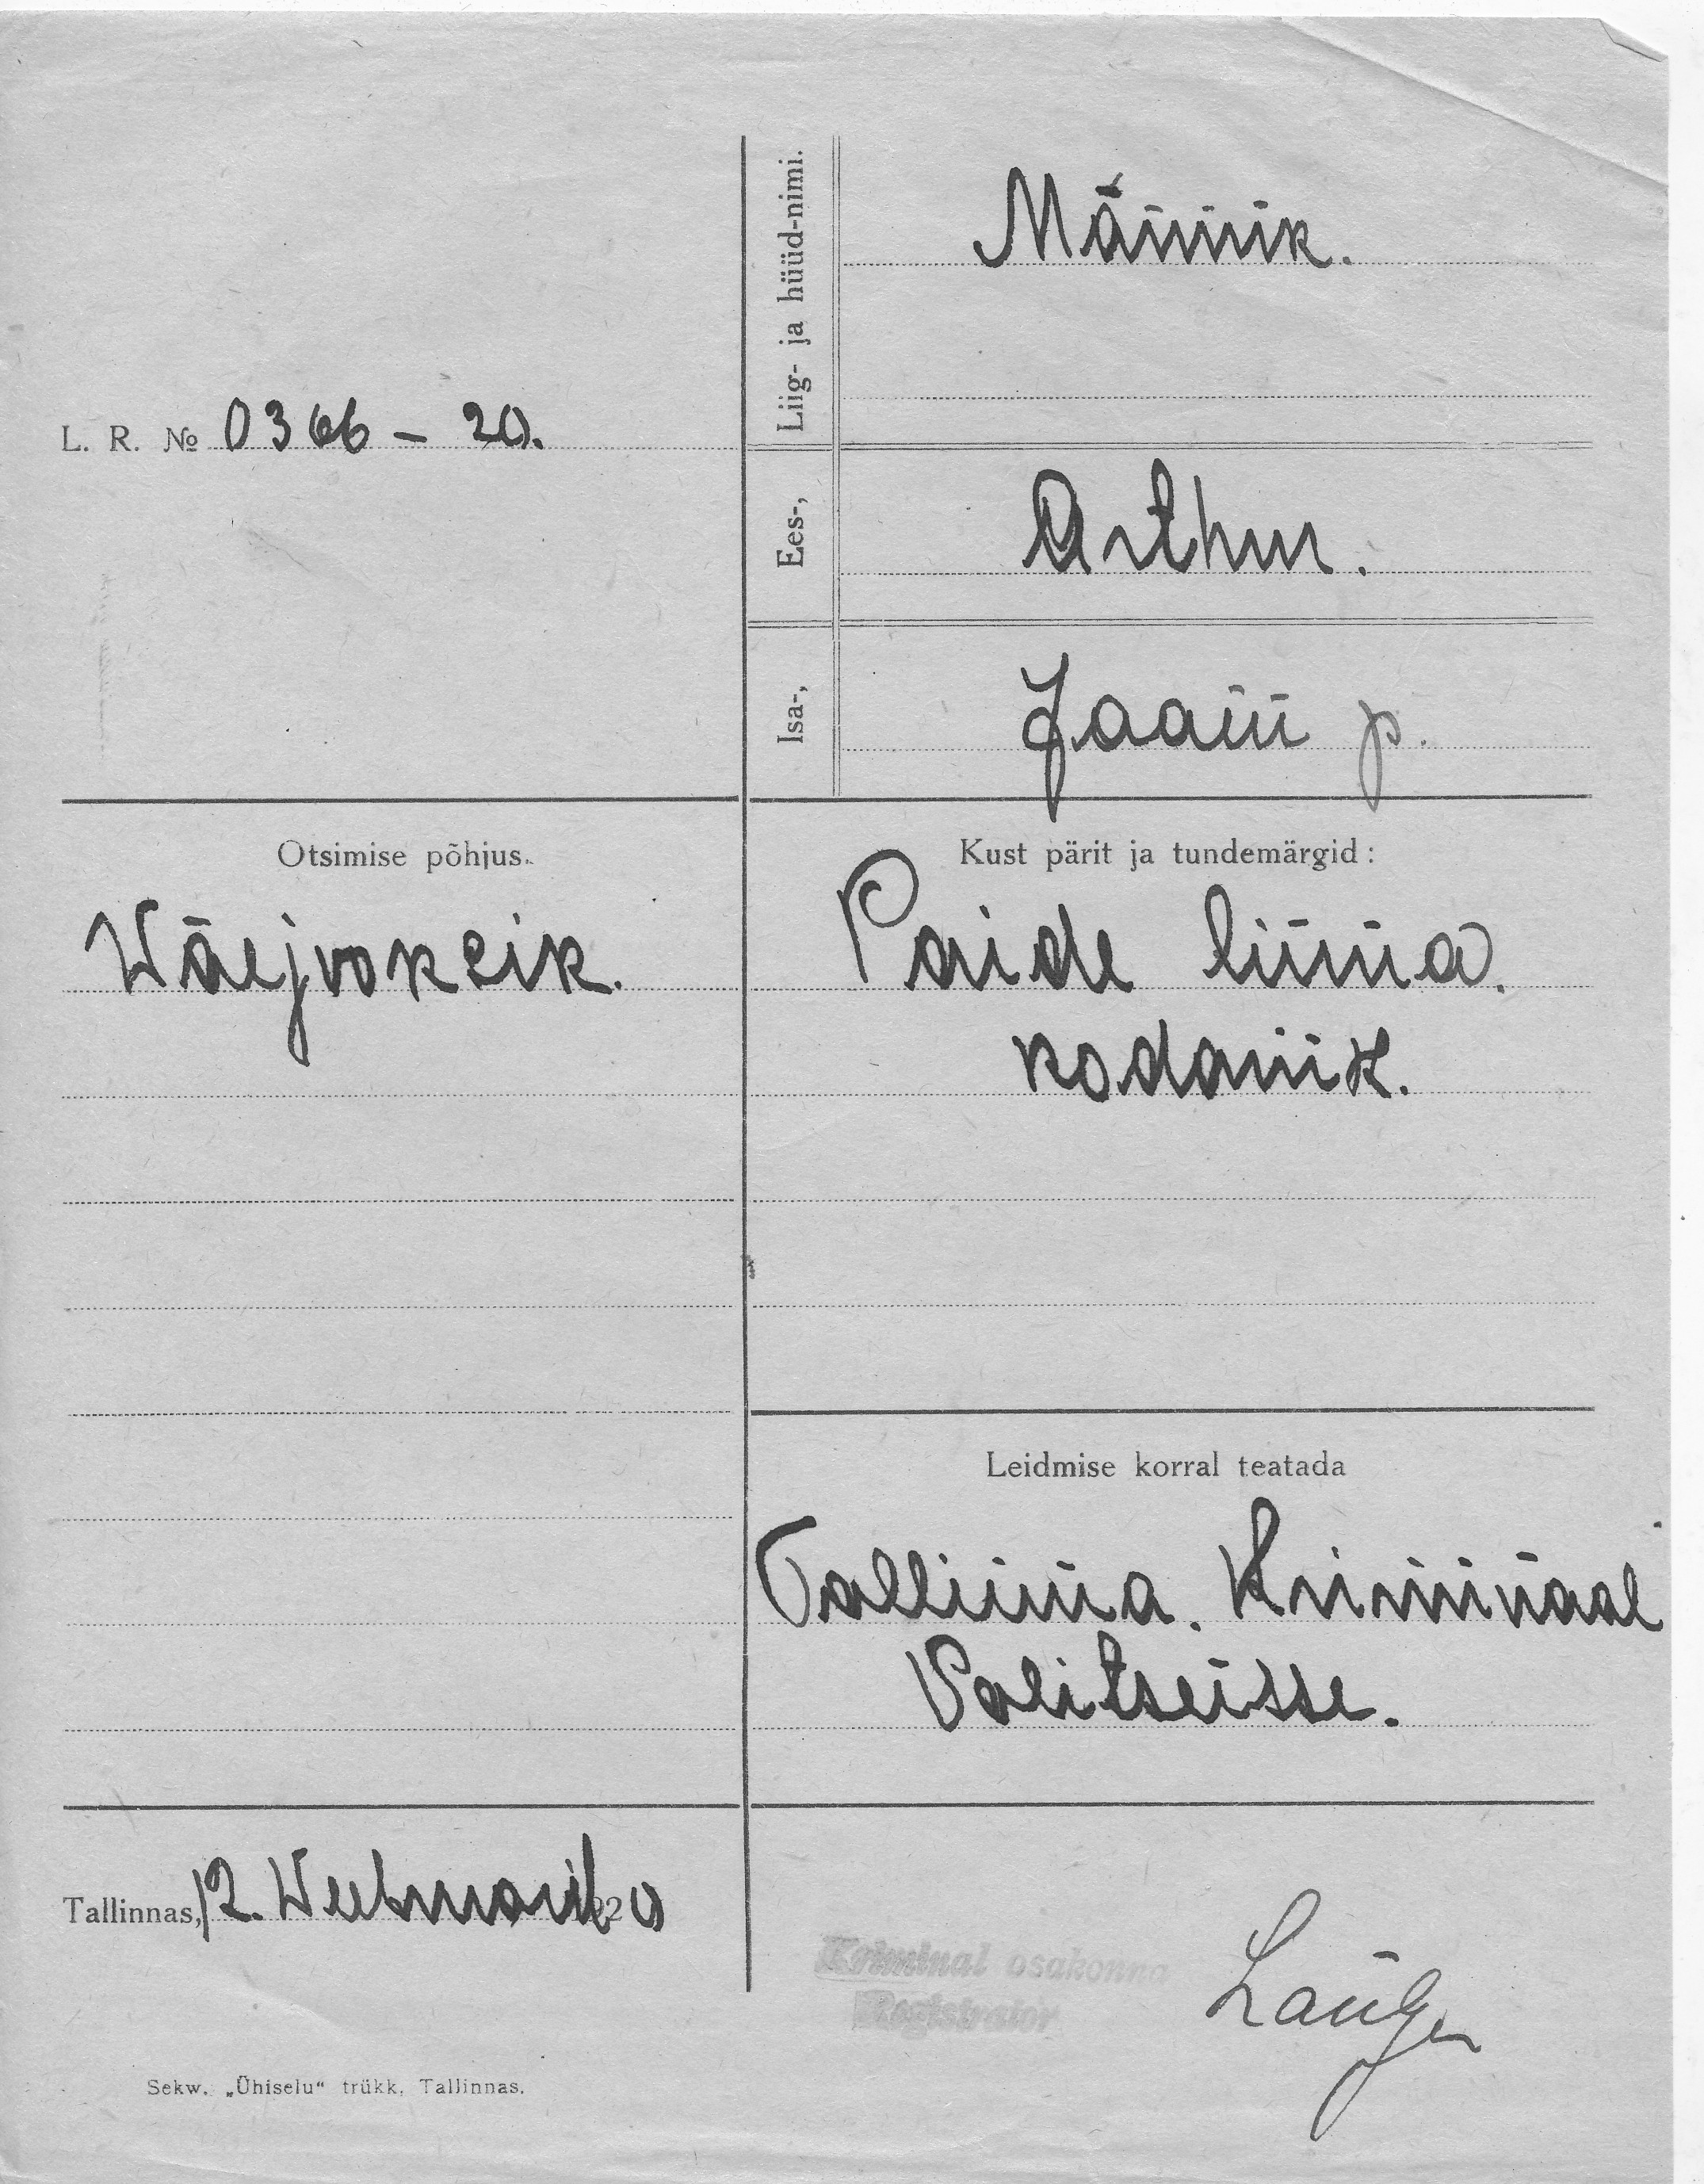 Liig- ja hüüd-nimi.
Männik.
L. R. № 0366 – 20.
Ees-,
Arthur.
Isa-,
Jaani p.
Otsimise põhjus.
Wäejooksik.
Kust pärit ja tundemärgid:
Paide linna.
kodanik.
Leidmise korral teatada
Tallinna. Kriminaal
Politseisse.
Tallinnas, 12. Weebruaril 1920
Kriminal osakonna
Registrator
Sekw. „Ühiselu“ trükk, Tallinnas.